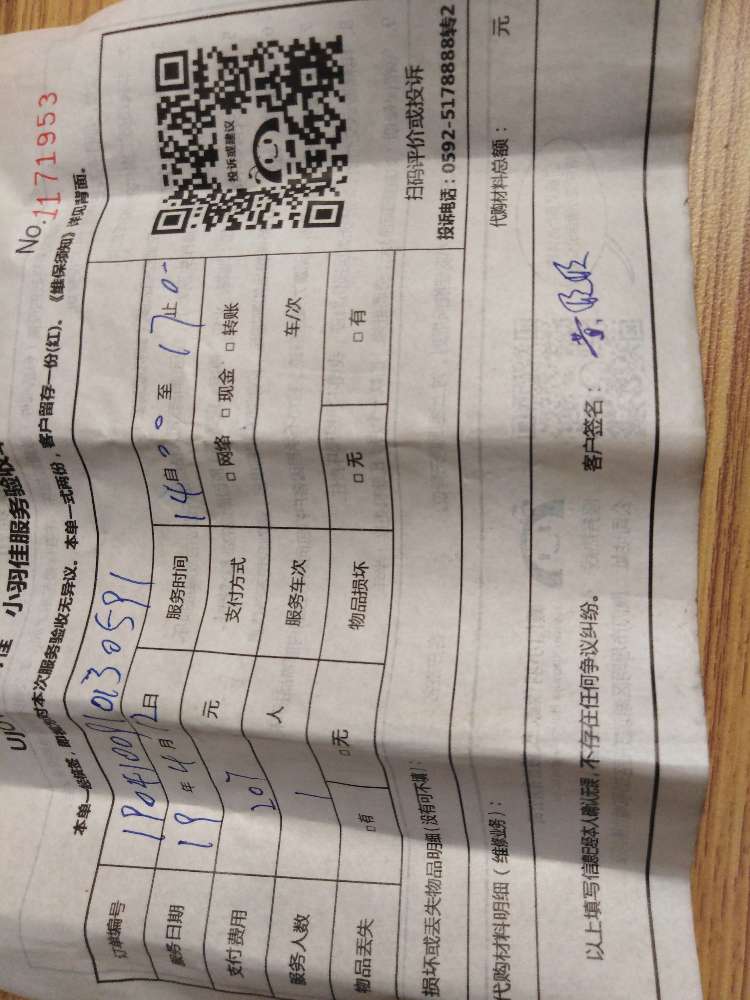 小羽佳服务验收
No.1171953
对本次服务验收无异议。本单一式两份，客户留存一份(红)。《维保须知》详见背面。
订单编号
服务日期 19年4月12日 服务时间 14自00至17止0
支付费用 207元 支付方式 □网络 □现金 □转账
服务人数 1人 服务车次 车/次
物品丢失 □有 □无 物品损坏 □无 □有
投诉或建议
扫码评价或投诉
投诉电话：0592-5178888转2
损坏或丢失物品明细(没有可不填)：
代购材料明细（维修业务）： 代购材料总额： 元
以上填写信息已经本人确认无误，不存在任何争议纠纷。 客户签名：